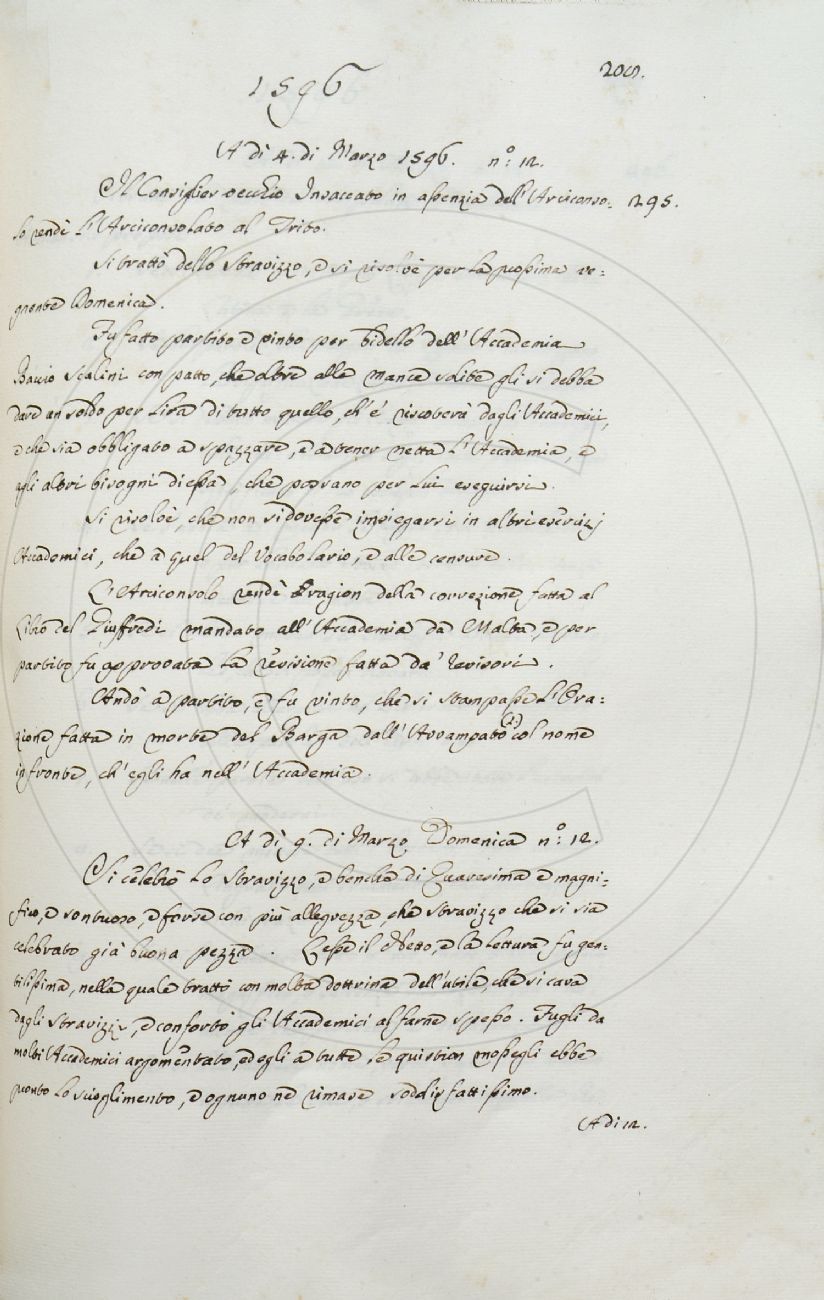 1596
A dì 4. di Marzo 1596. n.º: 12.
Il Consiglier vecchio Insaccato in assenzia dell'Arciconso: 295.
lo rendè L'Arciconsolato al Trito.
Si trattò dello Stravizzo, e si risolvè per la prossima ve:
gnente Domenica.
Fu fatto partito e vinto per bidello dell'Accademia
Scalini con patto, che oltre alle mance solite gli si debba
dare un soldo per Lira di tutto quello, ch'è riscoterà dagli Accademici,
e che sia obbligato a spazzare, e a tener netta L'Accademia, e
agli altri bisogni di essa, che possano per Lui eseguirsi.
Si risolvè, che non si dovesse impiegarsi in altri esercizj
Accademici, che a quel del Vocabolario, e alle censure.
L'Arciconsolo rendè ragion della correzione fatta al
Libro del Giuffredi mandato all'Accademia da Malta, e per
partito fu approvata La revisione fatta da' revisori.
Andò a partito, e fu vinto, che si stampasse L'Ora:
zione fatta in morte del Barga dall'Avvampato col nome
in fronte, ch'egli ha nell'Accademia.
A dì 9. di Marzo Domenica n.º: 12.
Si celebrò Lo Stravizzo, e benchè di Quaresima e magni:
fico, e sontuoso, e forse con più allegrezza, che stravizzo che si sia
celebrato già buona pezza. Lesse il Netto, e la Lettura fu gen:
tilissima, nella quale trattò con molta dottrina dell'utile, che si cava
dagli Stravizzi, e confortò gli Accademici al farne spesso. Fugli da
molti Accademici argomentato, ed egli a tutte le quistion mossegli ebbe
pronto Lo scioglimento, e ognuno ne rimase soddisfattissimo.
A dì 12.